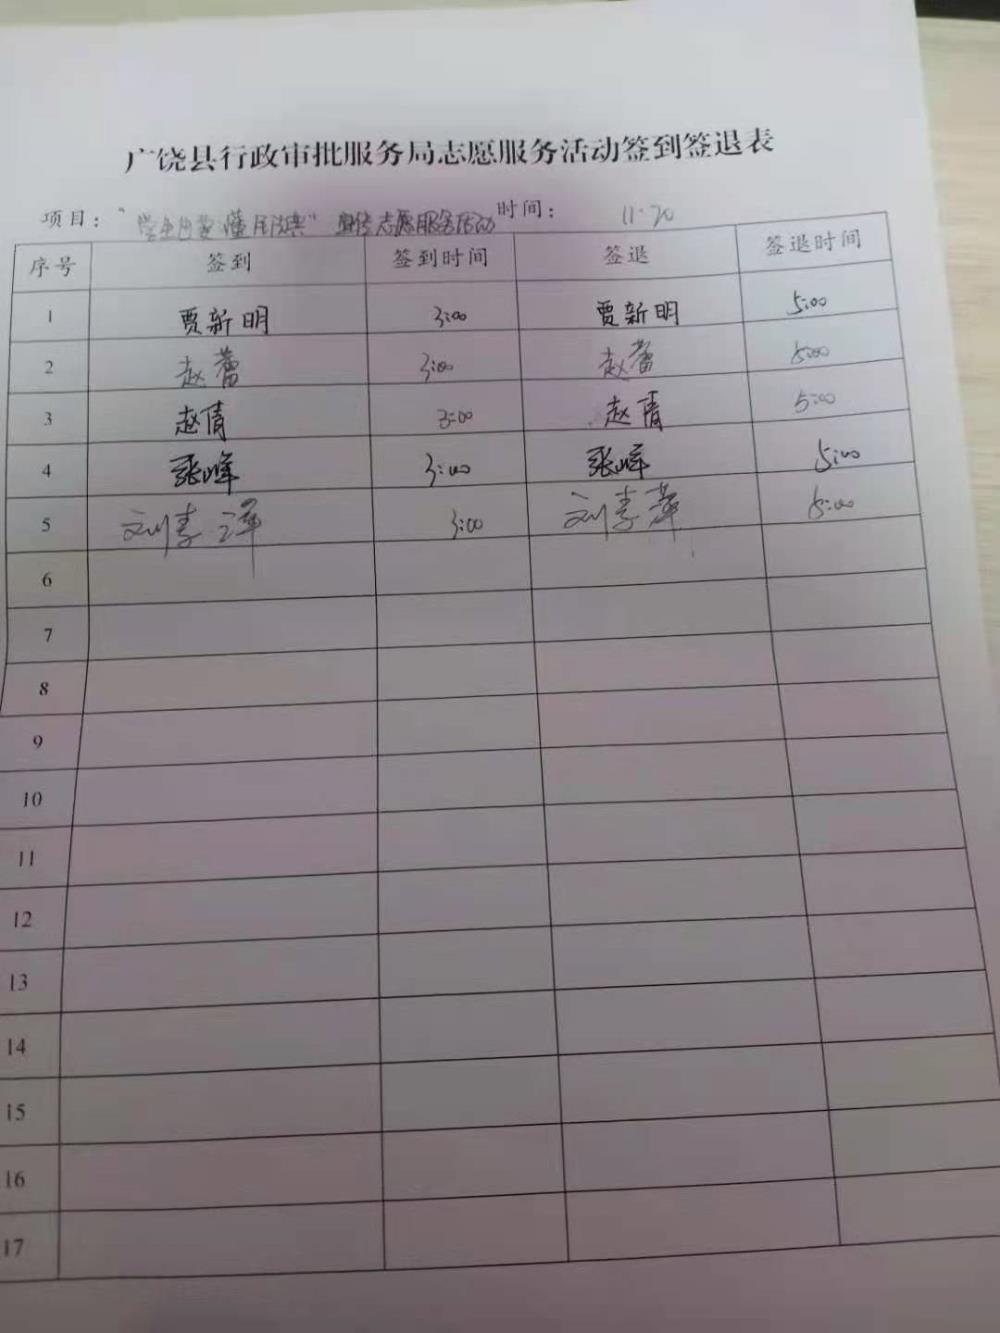 广饶县行政审批服务局志愿服务活动签到签退表
项目：" 懂民法典"宣传志愿服务活动 时间： 11.20
序号 签到 签到时间 签退 签退时间
1 贾新明 3:00 贾新明 5:00
2 赵蕾 3:00 赵蕾 5:00
3 赵倩 3:00 赵倩 5:00
4 张峰 3:00 张峰 5:00
5 刘李 3:00 刘李 5:00
6
7
8
9
10
11
12
13
14
15
16
17